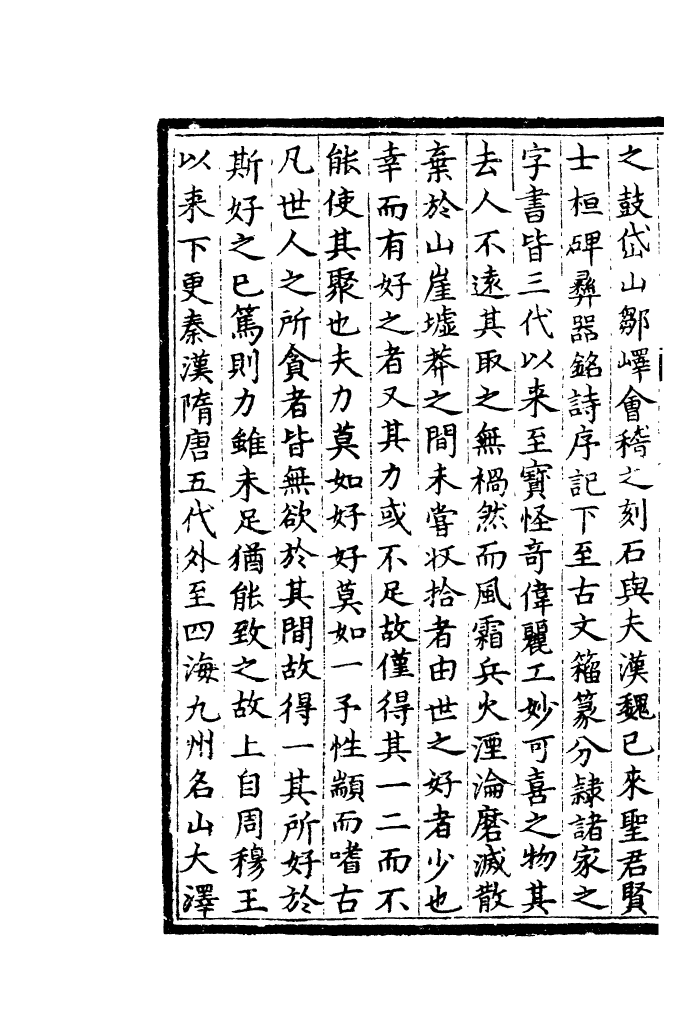 之鼓岱山鄒嶧會稽之刻石與夫漢魏已來聖君賢
士桓碑彞器銘詩序記下至古文籒篆分隷諸家之
字書皆三代以来至寶怪奇偉麗工妙可喜之物其
去人不遠其取之無禍然而風霜兵火湮淪磨滅散
棄於山崖墟莽之間未嘗收拾者由世之好者少也
幸而有好之者又其力或不足故僅得其一二而不
能使其聚也夫力莫如好好莫如一予性顓而嗜古
凡世人之所貪者皆無欲於其間故得一其所好於
斯好之已篤則力雖未足猶能致之故上自周穆王
以来下更秦漢隋唐五代外至四海九州名山大澤